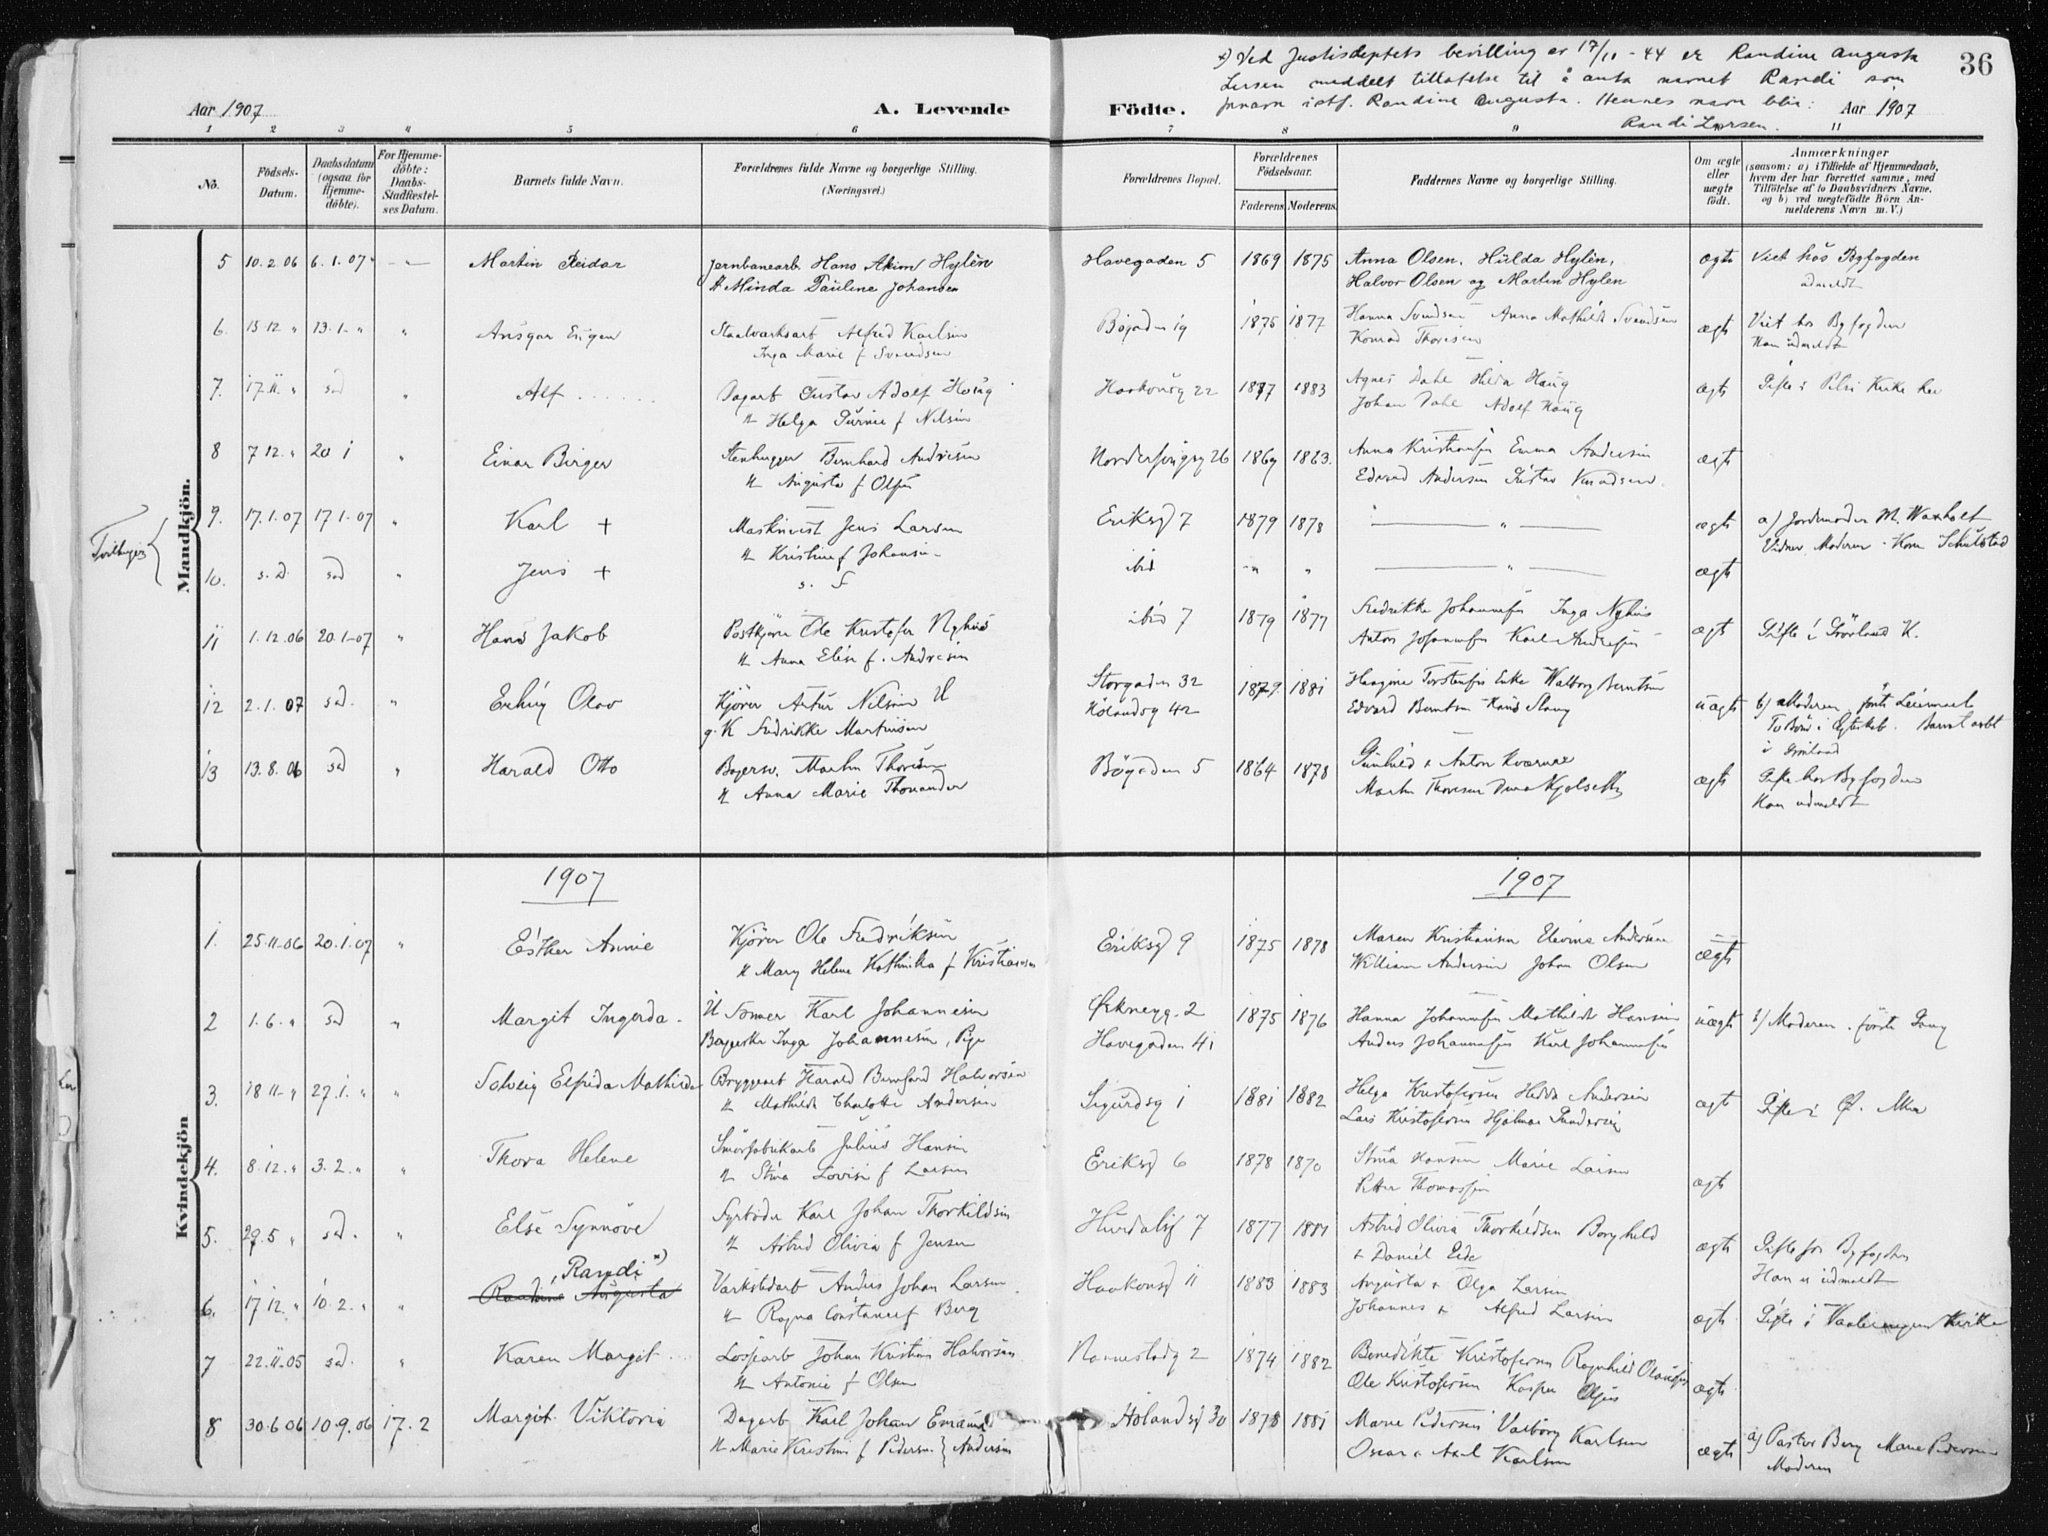 x) Ved Justisdeptets bevilling av 17/11-44 er Randine Augusta
Larsen meddelt tillatelse til å anta navnet Randi som
fornavn istf. Randine Augusta. Hennes navn blir:
Randi Larsen.
36
Aar 1907
A. Levende
Födte.
Aar 1907
1 2 3 4 5 6 7 8 9 10 11
No.
Födsels-
Datum.
Daabsdatum
(ogsaa for
Hjemme-
döbte).
For Hjemme-
döbte:
Daabs-
Stadfæstel-
ses Datum.
Barnets fulde Navn.
Forældrenes fulde Navne og borgerlige Stilling.
(Næringsvei.)
Forældrenes Bopæl.
Forældrenes
Födselsaar.
Faderens. Moderens.
Faddernes Navne og borgerlige Stilling.
Om ægte
eller
uægte
födt.
Anmærkninger
(saasom: a) i Tilfælde af Hjemmedaab,
hvem der har forrettet samme, med
Tilföielse af to Daabsvidners Navne,
og b) ved uægtefödte Börn An-
melderens Navn m. V.)
Mandkjön.
5 10.2.06 6.1.07 Martin Reidar Jernbanearb. Hans Akim Hylén Havegaden 5 1869 1875 Anna Olsen, Hulda Hylén, ægte Viet hos Byfogden
H Minda Pauline Johansen Halvor Olsen og Martin Hylen udmeldt
6. 15.12 " 13.1. " " Ansgar Eugen Staalverksarb Alfred Karlsen Bögaden 19 1875 1877 Hanna Svendsen Anna Mathilde Svendsen ægte Viet hos Byfogden
Inga Marie f Svendsen Konrad Thoresen Han udmeldt
7. 17.11 " sad " Alf Dagarb Gustav Adolf Haug Haakonsg 22 1877 1883 Agnes Dahl Hilda Haug ægte Gifte i Petri Kirke her
H Helga f Nilsen Johan Dahl Adolf Haug
8 7 12. " 20 1 " Einar Birger Stenhugger Bernhard Andresen 1869 1863. Anna Emma Andersen ægte
H Augusta f Olsen Edvard Andersen Gustav
Tvillinger
9. 17.1.07 17.1.07 " Karl + Jens Larsen Eriksg 7 1879 1878 " ægte a) Jordemoder M. Waxholt
H Kristine f Johansen Vidner, Moderen
10. s.D. sad " Jens + s. S ibid " " " ægte
11 1.12.06 20.1-07 " Hans Jakob Postkjörer Ole Kristofer Nyhus ibid 7 1879 1877 Fredrikke Inga Nyhus ægte Gifte i Grönland K.
H Anna Elise f. Andresen Anton Karl
12 2.1.07 sad. " Erling Olav Kjörer Artur Nilsen U Storgaden 32 1879. 1881 Walborg Berntsen uægte b) Moderen,
g.K Fredrikke Martinsen Hölandsg 42 Edvard Berntsen Hans i Grönland
13 13.8.06 sad " Harald Otto Martin Thoresen Bögaden 5 1864 1878 Gunhild & Anton Kværnæs ægte Gifte hos Byfogden
H Anna Marie Thorander Martin Thoresen Han udmeldt
Kvindekjön
1907
1907
1. 25.11.06 20.1.07 " Esther Annie Kjörer Ole Fredriksen Eriksg 9 1875 1878 Maren Kristiansen Elevine Andersen ægte
H Mary Helene Kathinka f Kristiansen William Andersen Johan Olsen
2 1.6. " sad " Margit Ingerda. U Karl Johannesen 2 1875 1876 Hanna Mathilde Hansen uægte b) Moderen. förste Gang
Inga Johannesen, Pige Havegaden 41 Anders Karl
3. 18 11. " 27.1. " " Solveig Elfrida Mathilde Bryggearb Harald Bernhard Halvorsen Sigurdsg 1 1881 1882 Helga Kristofersen Hedda Andersen ægte Gifte i Ö. Aker
H Mathilde Charlotte Andersen Lars Kristofersen Hjalmar Gundersen
4. 8.12. " 3.2. " " Thora Helene Julius Hansen Eriksg 6 1878 1870 Stina Hansen Marie Larsen ægte
H Stina Lovise f Larsen Petter Thomassen
5. 29.5 " sad. " Else Synnöve Fyrböder Karl Johan Thorkildsen Hurdalsg 7 1877 1881 Astrid Olivia Thorkildsen Borghild ægte Gifte hos Byfogden
H Astrid Olivia f Jensen & Daniel Eide Han er udmeldt
Randi x)
6. 17 12. " 10.2. " " Randine Augusta Verkstedarb Anders Johan Larsen Haakonsg 11 1883 1883 Augusta & Olga Larsen ægte Gifte i Vaalerengens Kirke
H Ragna Constance f Berg Johannes & Alfred Larsen
7 22.11.05 sad. " Karen Margit Lösarb Johan Kristian Halvorsen Nannestadg 2 1874 1882 Benedikte Kristofersen Ragnhild ægte
H Antonie f Olsen Ole Kristofersen Kasper Olsen
8 30.6.06 10.9.06 17.2 Margit Viktoria Dagarb Karl Johan Emanuel Hölandsg 30 1878 1881 Marie Pedersen Valborg Karlsen ægte a) Pastor Berg Marie Pedersen
H Marie Kristine f Pedersen } Andersen Oscar & Axel Karlsen Moderen